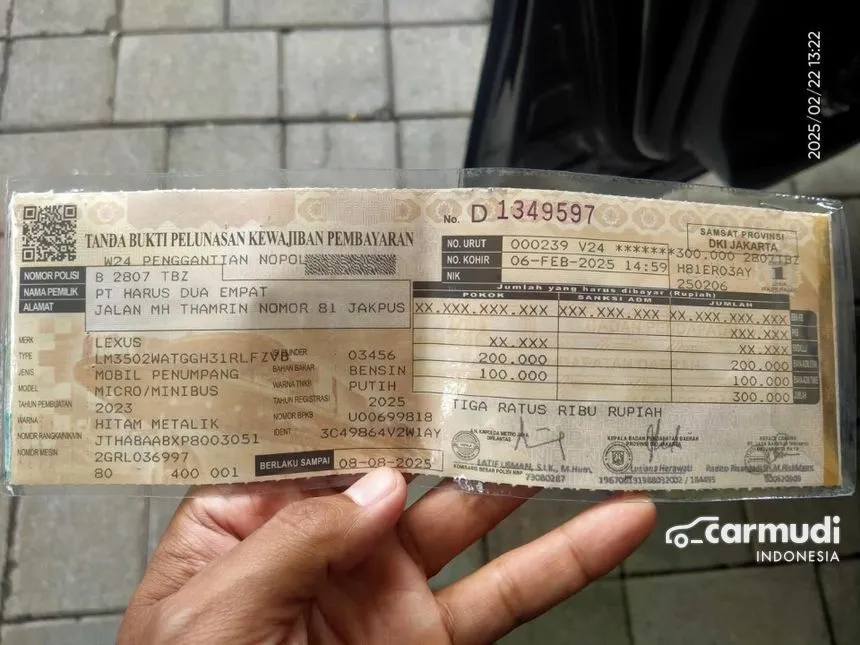 2025/02/22 13:22
No. D 1349597
TANDA BUKTI PELUNASAN KEWAJIBAN PEMBAYARAN
W24 PENGGANTIAN NOPOL
NOMOR POLISI B 2807 TBZ
NAMA PEMILIK PT HARUS DUA EMPAT
ALAMAT JALAN MH THAMRIN NOMOR 81 JAKPUS
MERK LEXUS
TYPE LM3502WATGGH31RLFZVB
JENIS MOBIL PENUMPANG
MODEL MICRO/MINIBUS
TAHUN PEMBUATAN 2023
WARNA HITAM METALIK
NOMOR RANGKA/NIK/VIN JTHABAABXP8003051
NOMOR MESIN 2GRL036997
80 400 001
CYLINDER 03456
BAHAN BAKAR BENSIN
WARNA TNKB PUTIH
TAHUN REGISTRASI 2025
NOMOR BPKB U00699818
IDENT 3C49864V2W1AY
BERLAKU SAMPAI 08-08-2025
SAMSAT PROVINSI
DKI JAKARTA
NO. URUT 000239 V24 *******300.000 2807TBZ
NO. KOHIR 06-FEB-2025 14:59 H81ER03AY
NIK 250206
1
Jumlah yang harus dibayar (Rupiah)
POKOK SANKSI ADM JUMLAH
XX.XXX.XXX.XXX XXX.XXX.XXX XX.XXX.XXX.XXX
XX.XXX XX.XXX
200.000 200.000
100.000 100.000
300.000
TIGA RATUS RIBU RUPIAH
A.N. KAPOLDA METRO JAYA
DIRLANTAS
LATIF USMAN, S.I.K., M.Hum.
KOMBINASI BESAR POLISI NRP
73080287
KEPALA BADAN PENDAPATAN DAERAH
Lusiana Herawati
196706131988032002 / 184495
KEPALA CABANG
carmudi
INDONESIA